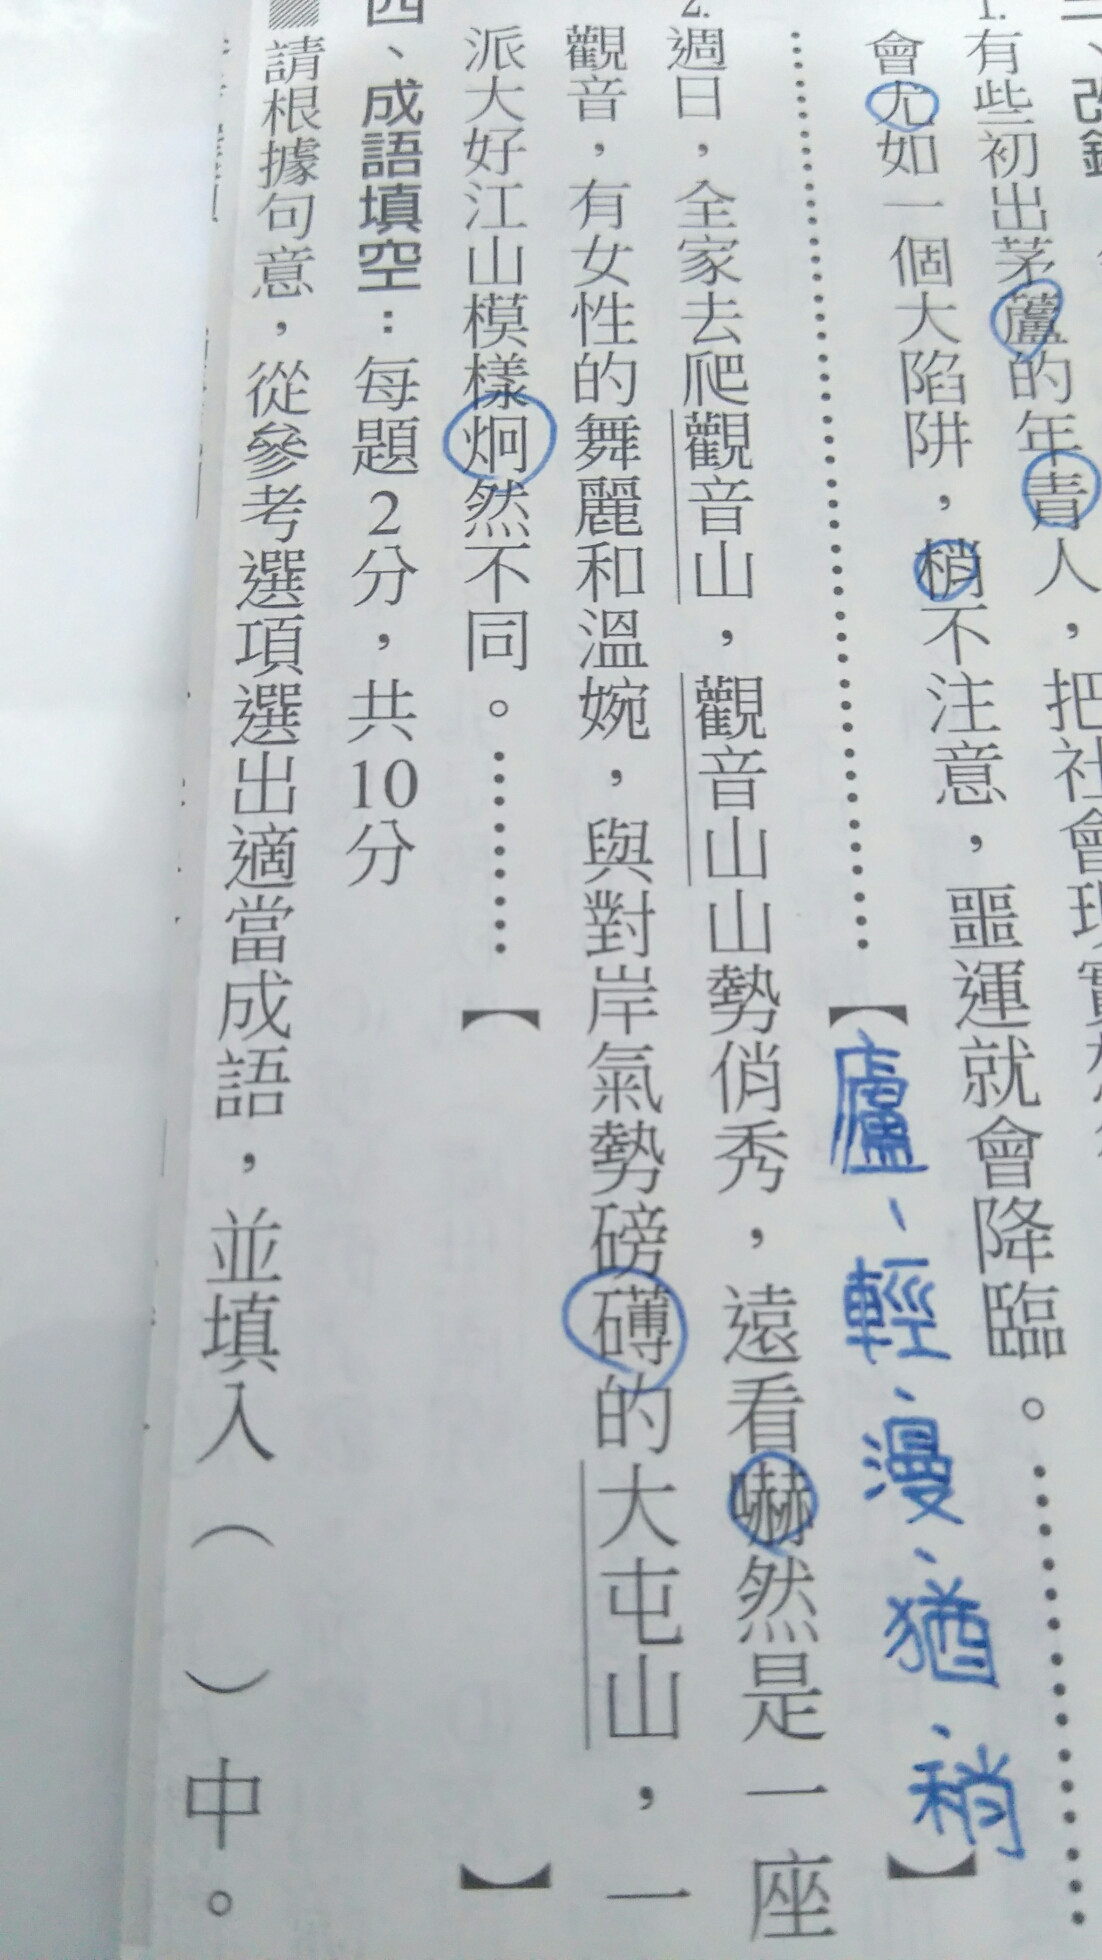 1.有些初出茅蘆的年青人，把社會現實
會尤如一個大陷阱，梢不注意，噩運就會降臨。
【廬、輕、漫、猶、稍】
2.週日，全家去爬觀音山，觀音山山勢俏秀，遠看嚇然是一座
觀音，有女性的舞麗和溫婉，與對岸氣勢磅礡的大屯山，一
派大好江山模樣炯然不同。
【】
四、成語填空：每題2分，共10分
請根據句意，從參考選項選出適當成語，並填入（ ）中。